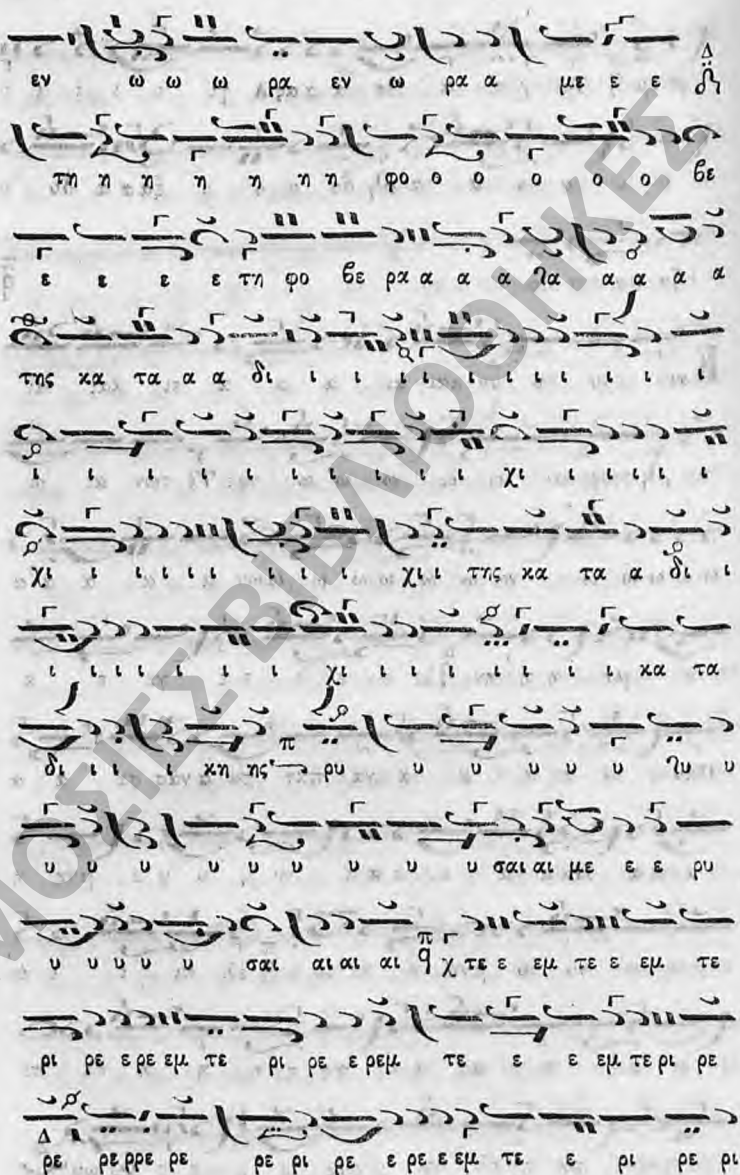 εν ω ω ω ρα εν ω ρα α με ε ε Δ
τη η η η η η η φο ο ο ο ο ο βε
ε ε ε ε τη φο βε ρα α α α λα α α α α
της κα τα α α δι ι ι ι ι ι ι ι ι ι ι ι
ι ι ι ι ι ι ι ι ι χι ι ι ι ι ι
χι ι ι ι ι ι ι ι ι χι ι της κα τα α δι ι
ι ι ι ι ι ι ι χι ι ι ι ι ι ι ι κα τα
δι ι ι ι κη ης π ρυ υ υ υ υ υ λυ υ
υ υ υ υ υ υ υ υ υ σαι αι με ε ε ρυ
υ υ υ υ υ σαι αι αι αι π q χ τε ε εμ τε ε εμ τε
ρι ρε ε ρε εμ τε ρι ρε ε ρεμ τε ε ε εμ τε ρι ρε
Δ
ρε ρε ρρε ρε ρε ρι ρε ε ρε ε εμ τε ε ρι ρε ρι
ΜΟΣΙΕΣ ΒΙΒΛΙΟΘΗΚΕΣ